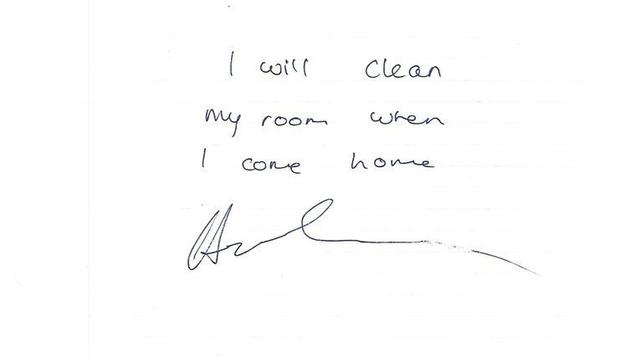 I will clean
my room when
I come home